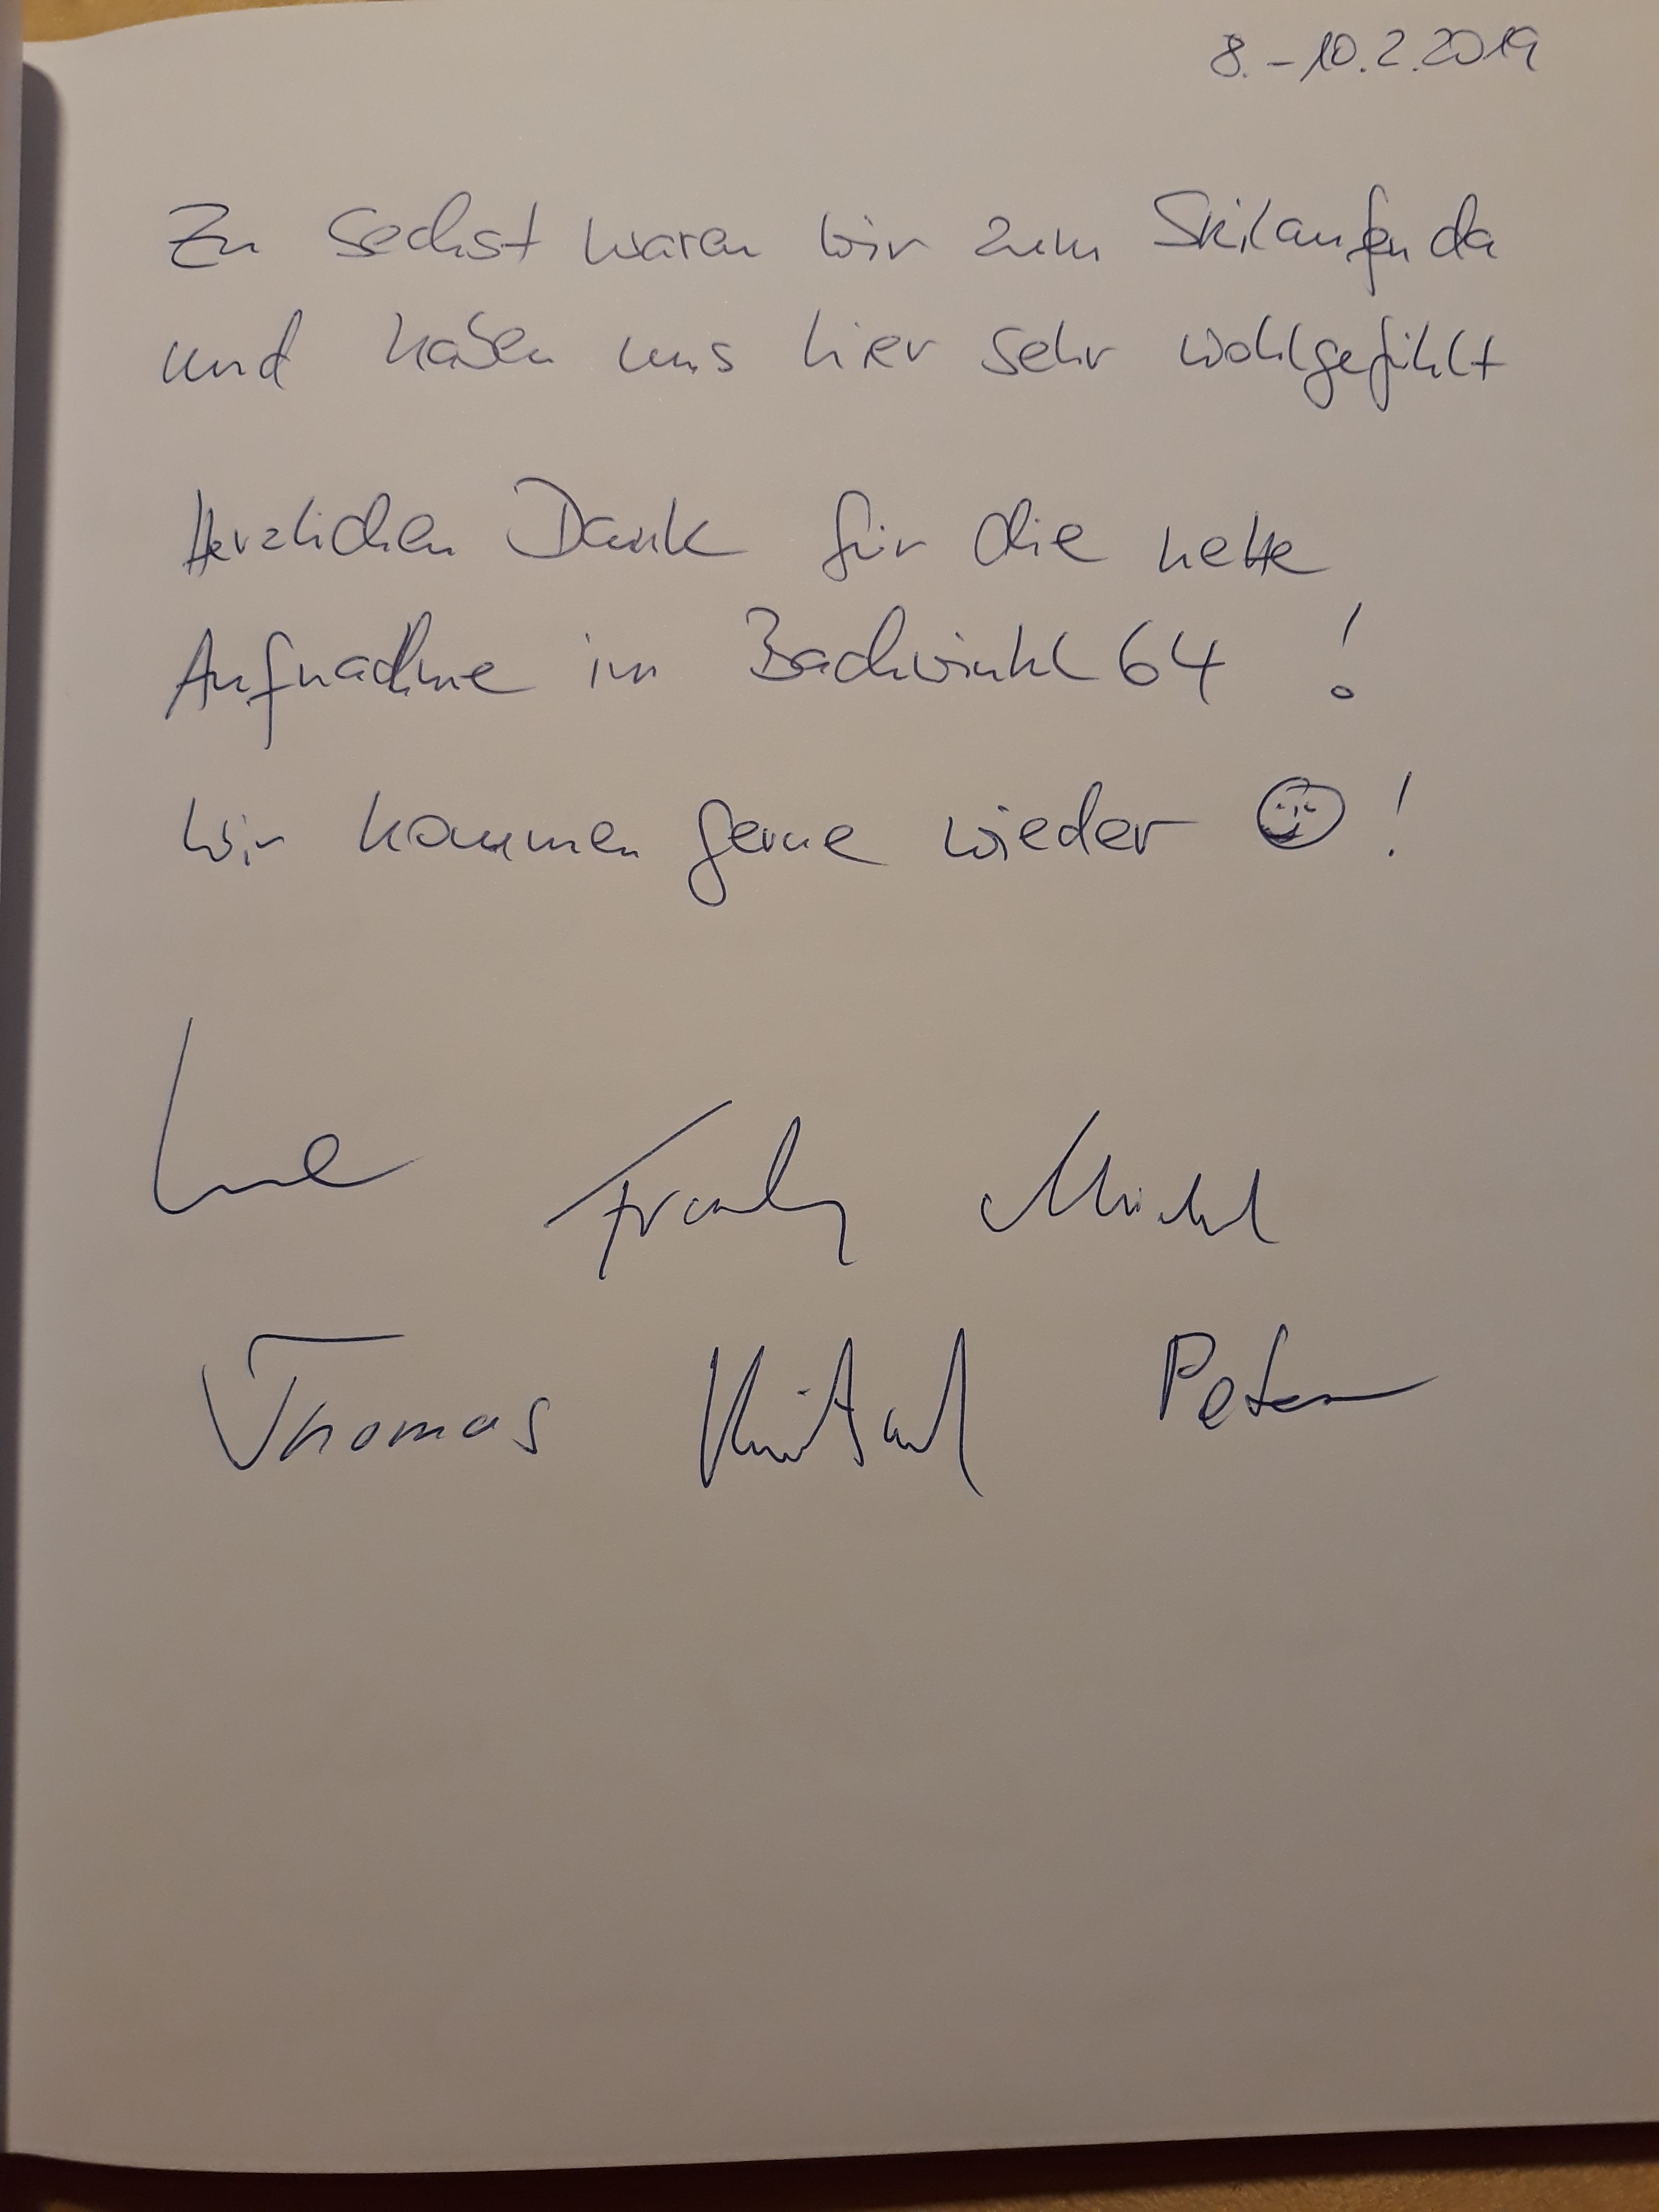 8.-10.2.2019
Zu sechst waren wir zum Skilaufen da
und haben uns hier sehr wohlgefühlt
Herzlichen Dank für die nette
Aufnahme im Bachwinkl 64 !
Wir kommen gerne wieder ☺ !
Michl
Thomas Peter